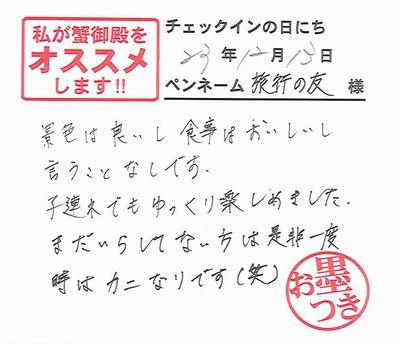 私が蟹御殿を
オススメ
します!!
チェックインの日にち
23年12月13日
ペンネーム 旅行の友 様
景色は良いし 食事はおいしいし
言うことなしです.
子連れでもゆっくり楽しめました.
まだいらしてない方は是非一度
時はカニなりです(笑)
お墨つき